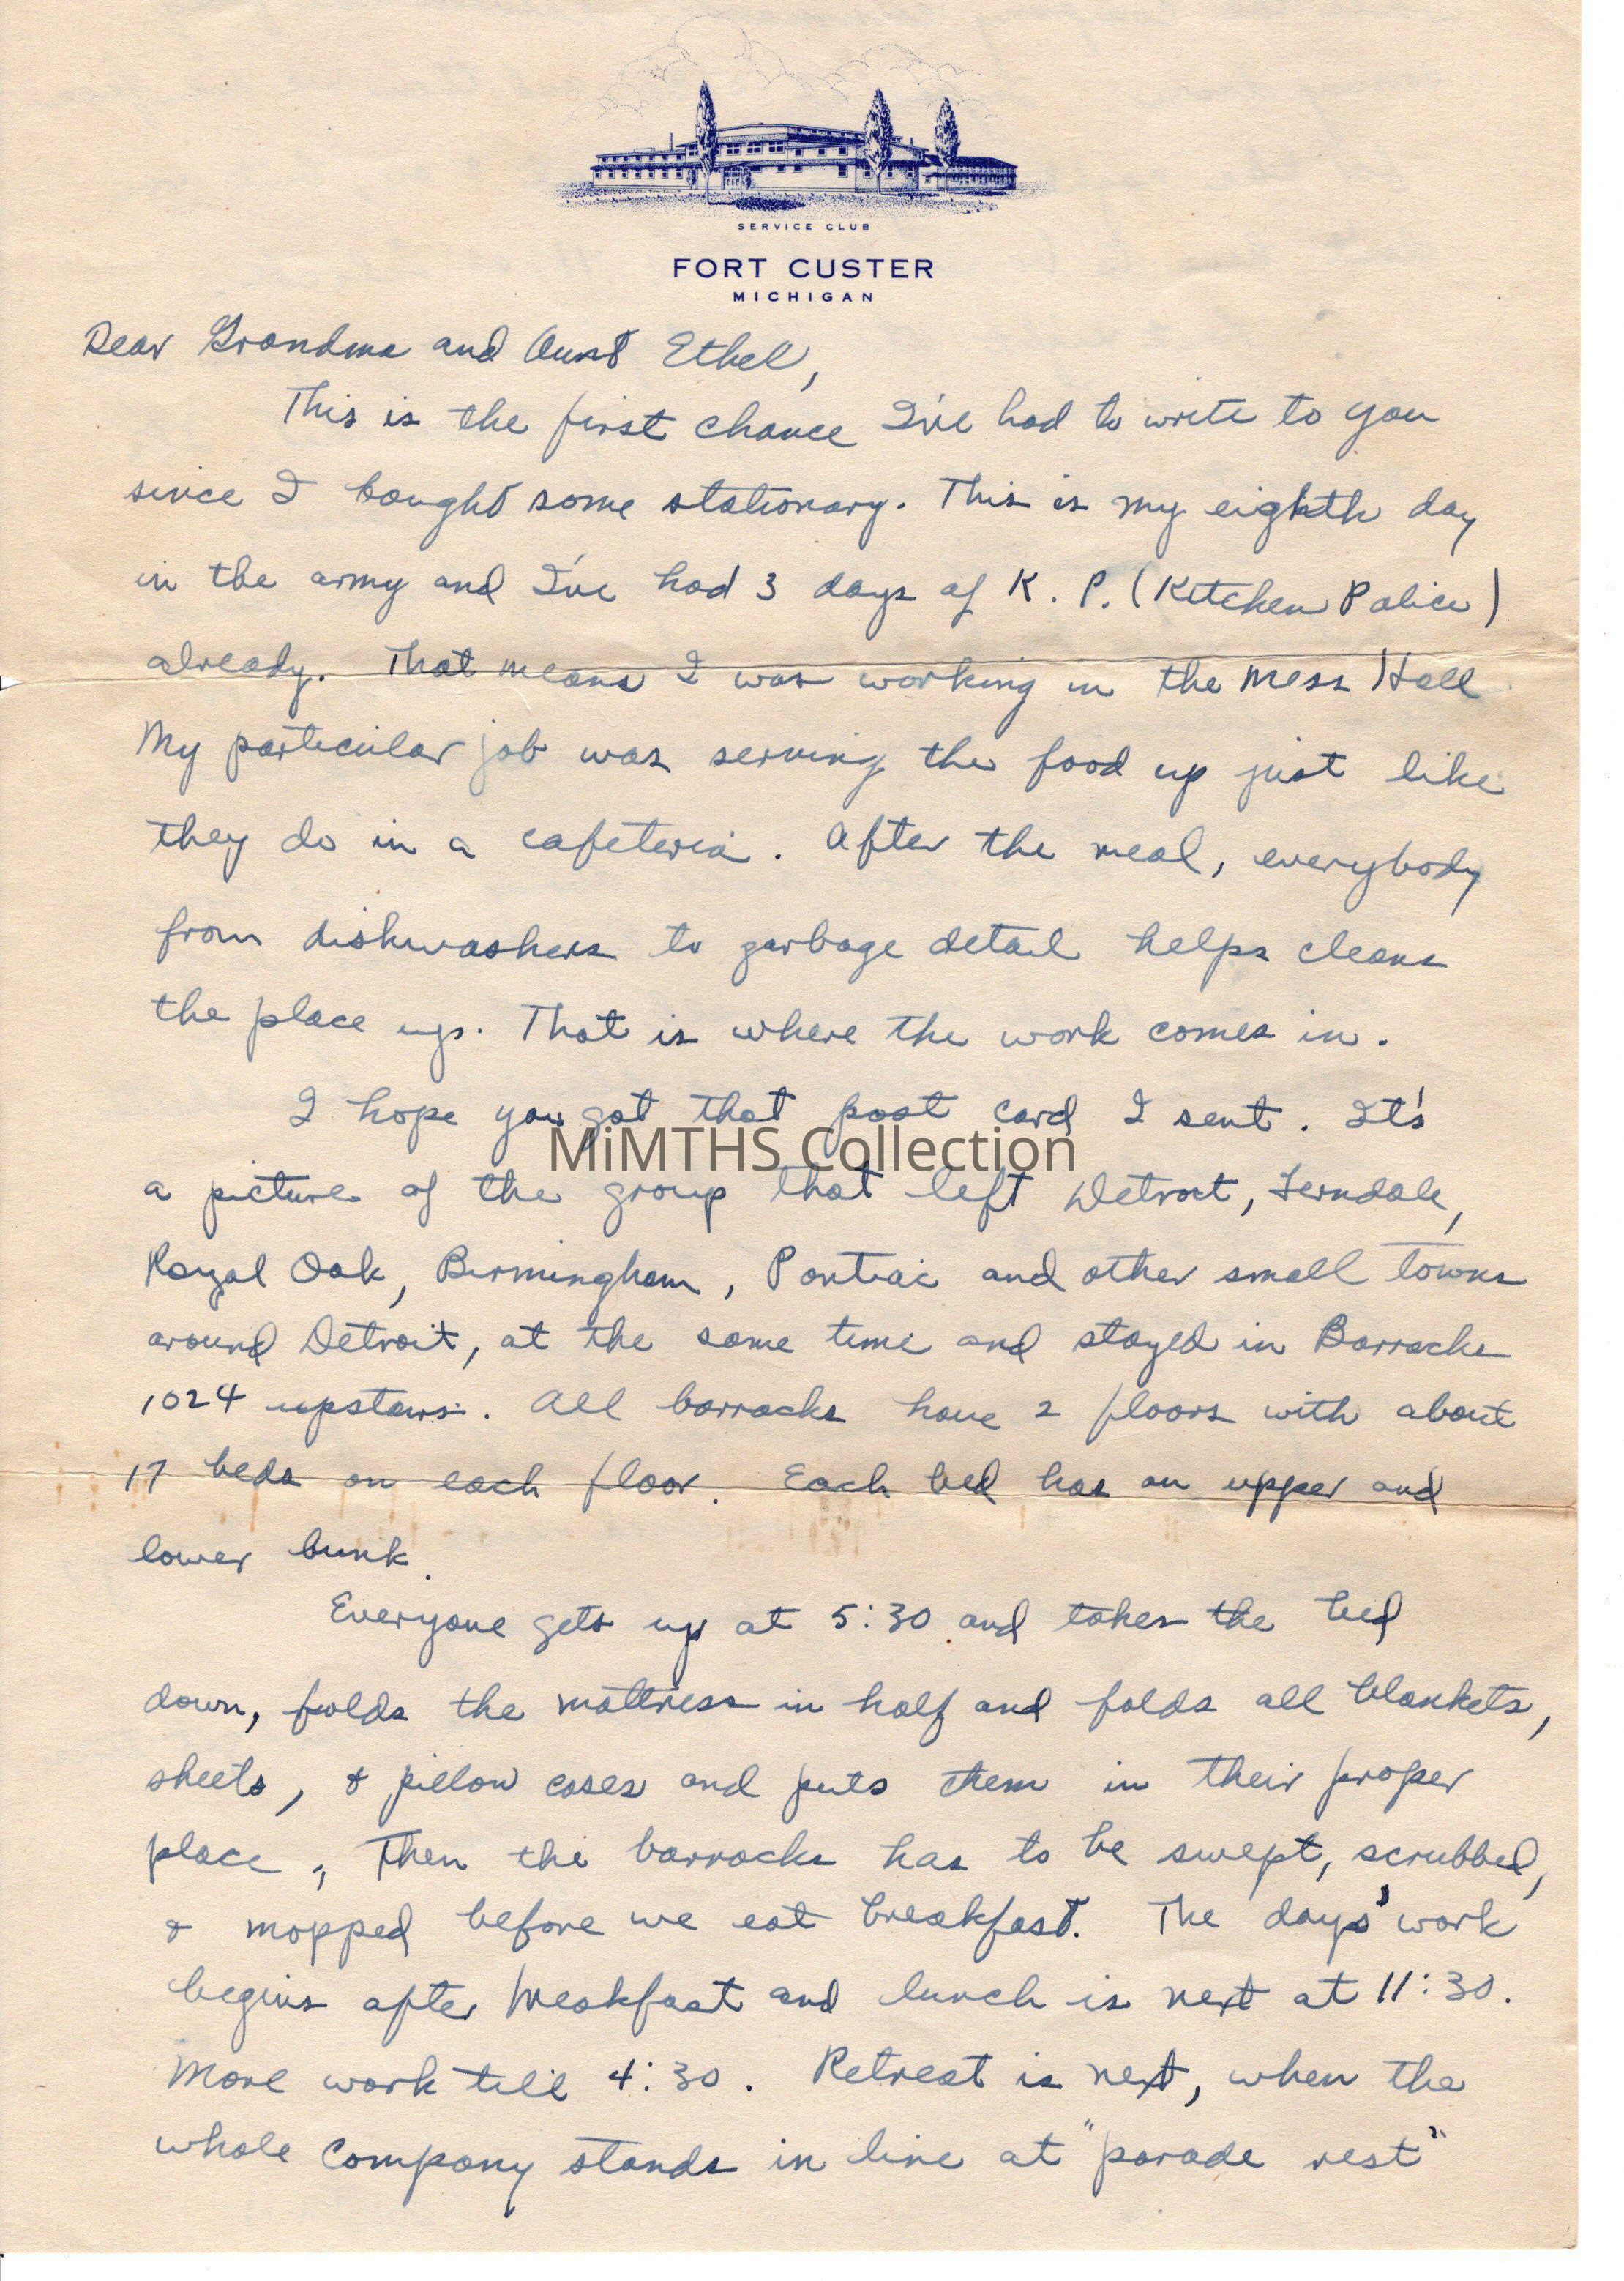 SERVICE CLUB
FORT CUSTER
MICHIGAN
Dear Grandma and Aunt Ethel,
This is the first chance I've had to write to you
since I bought some stationary. This is my eighth day
in the army and I've had 3 days of K. P. (Kitchen Police)
already. That means I was working in the Mess Hall
My particular job was serving the food up just like
they do in a cafeteria. After the meal, everybody
from dishwashers to garbage detail helps cleans
the place up. That is where the work comes in.
I hope you got that post card I sent. It's
MiMTHS Collection
a picture of the group that left Detroit, Ferndale,
Royal Oak, Birmingham, Pontiac and other small towns
around Detroit, at the same time and stayed in Barracks
1024 upstairs. All barracks have 2 floors with about
17 beds on each floor. Each bed has an upper and
lower bunk.
Everyone gets up at 5:30 and takes the bed
down, folds the mattress in half and folds all blankets,
sheets, & pillow cases and puts them in their proper
place, Then the barracks has to be swept, scrubbed,
& mopped before we eat breakfast. The days' work
begins after breakfast and lunch is next at 11:30.
More work till 4:30. Retreat is next, when the
whole company stands in line at "parade rest"